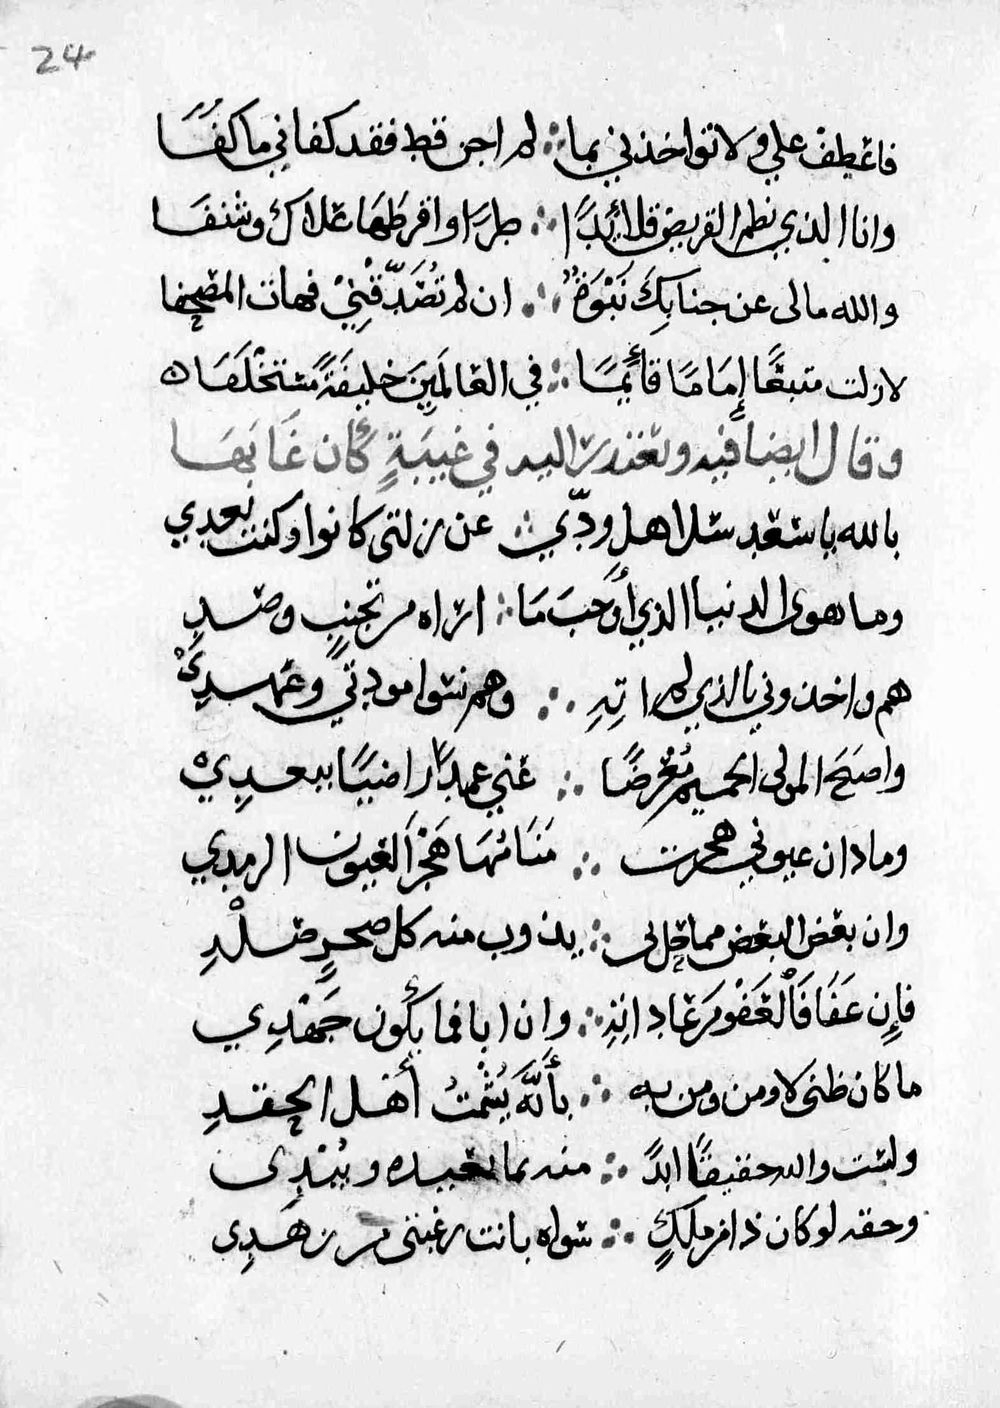 24
فاعطف علي ولا تواخذني بما ∴ لم اجن قط فقد كفاني ما كفَا
وانا الذي نظم القريض قلائدًا ∴ طررا واقرطها علاك وشنفَا
والله مالى عن جنابِكَ نَبْوَةٌ ∴ ان لم تُصَدّقْنِيْ فهات المصحفا
لازلت متبعًا إِمَامًا قَائِمًا ∴ في العالَمِينَ خليفَةً مُستخْلَفَا
وقال ايضا فيه ويعتذر اليه في غيبَةٍ كَان غَابَهَا
بالله يا سعد سل اهل ودّي ∴ عن زلتى كانوا وكنت بعدي
وما هوى الدنيا الذي أَوجَبَ مَا ∴ اراه من تجنبٍ وصدِ
هم واخذوني بالذي لم اتِهِ ∴ وهم نسوا مودتي وعهدِيْ
واصبَحَ المولى الحميم مُعْرِضًا ∴ عني عمدًا راضيًا ببعدِي
وماذان عيوني هجرت ∴ مَنَامَهَا هَجْرَ العُيون الرمدِي
وان بعض البعض مما حل بى ∴ يذوب منه كل صخرٍ صلْدِ
فإِن عَفَا فَالْعَفْو مِن عَادَاتِهِ ∴ وان ابا فما يكُون جَهْدِي
ما كان ظنى لا ومن ومن به ∴ بأَنَّه يُشْمِتُ أَهْل الحِقدِ
ولست والله حقيقًا ابدً ∴ منه بما يعيده ويُبْدِى
وحقه لو كان ذا من ملِكٍ ∴ سواه بانت رغبتى من زهَدِى